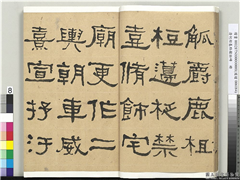 觚爵鹿柤
梪籩柉禁
壺脩飾宅
廟更作二
輿朝車威
熹宣抒汙